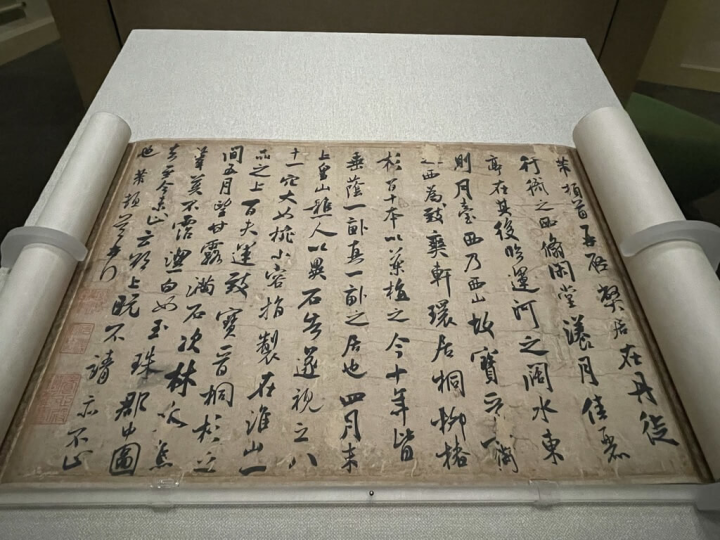 芾頓首再啟弊居在丹徒
行衙之西翛閑堂漾月佳麗
亭在其後臨運河之闊水東
則月臺西乃西山故寶晉齋
之西為致爽軒環居桐柳椿
杉百十本以藥植之今十年皆
垂蔭一畝真一畝之居也四月末
上皇山樵人以異石告遂視之八
十一穴大如椀小容指製在淮山一
品之上百夫運致寶晉桐杉之
間五月望甘露滿石次林木焦
葦莫不霑灑白如玉珠郡中圖
去至今未止云欲上既不請亦不止
也芾頓首再拜